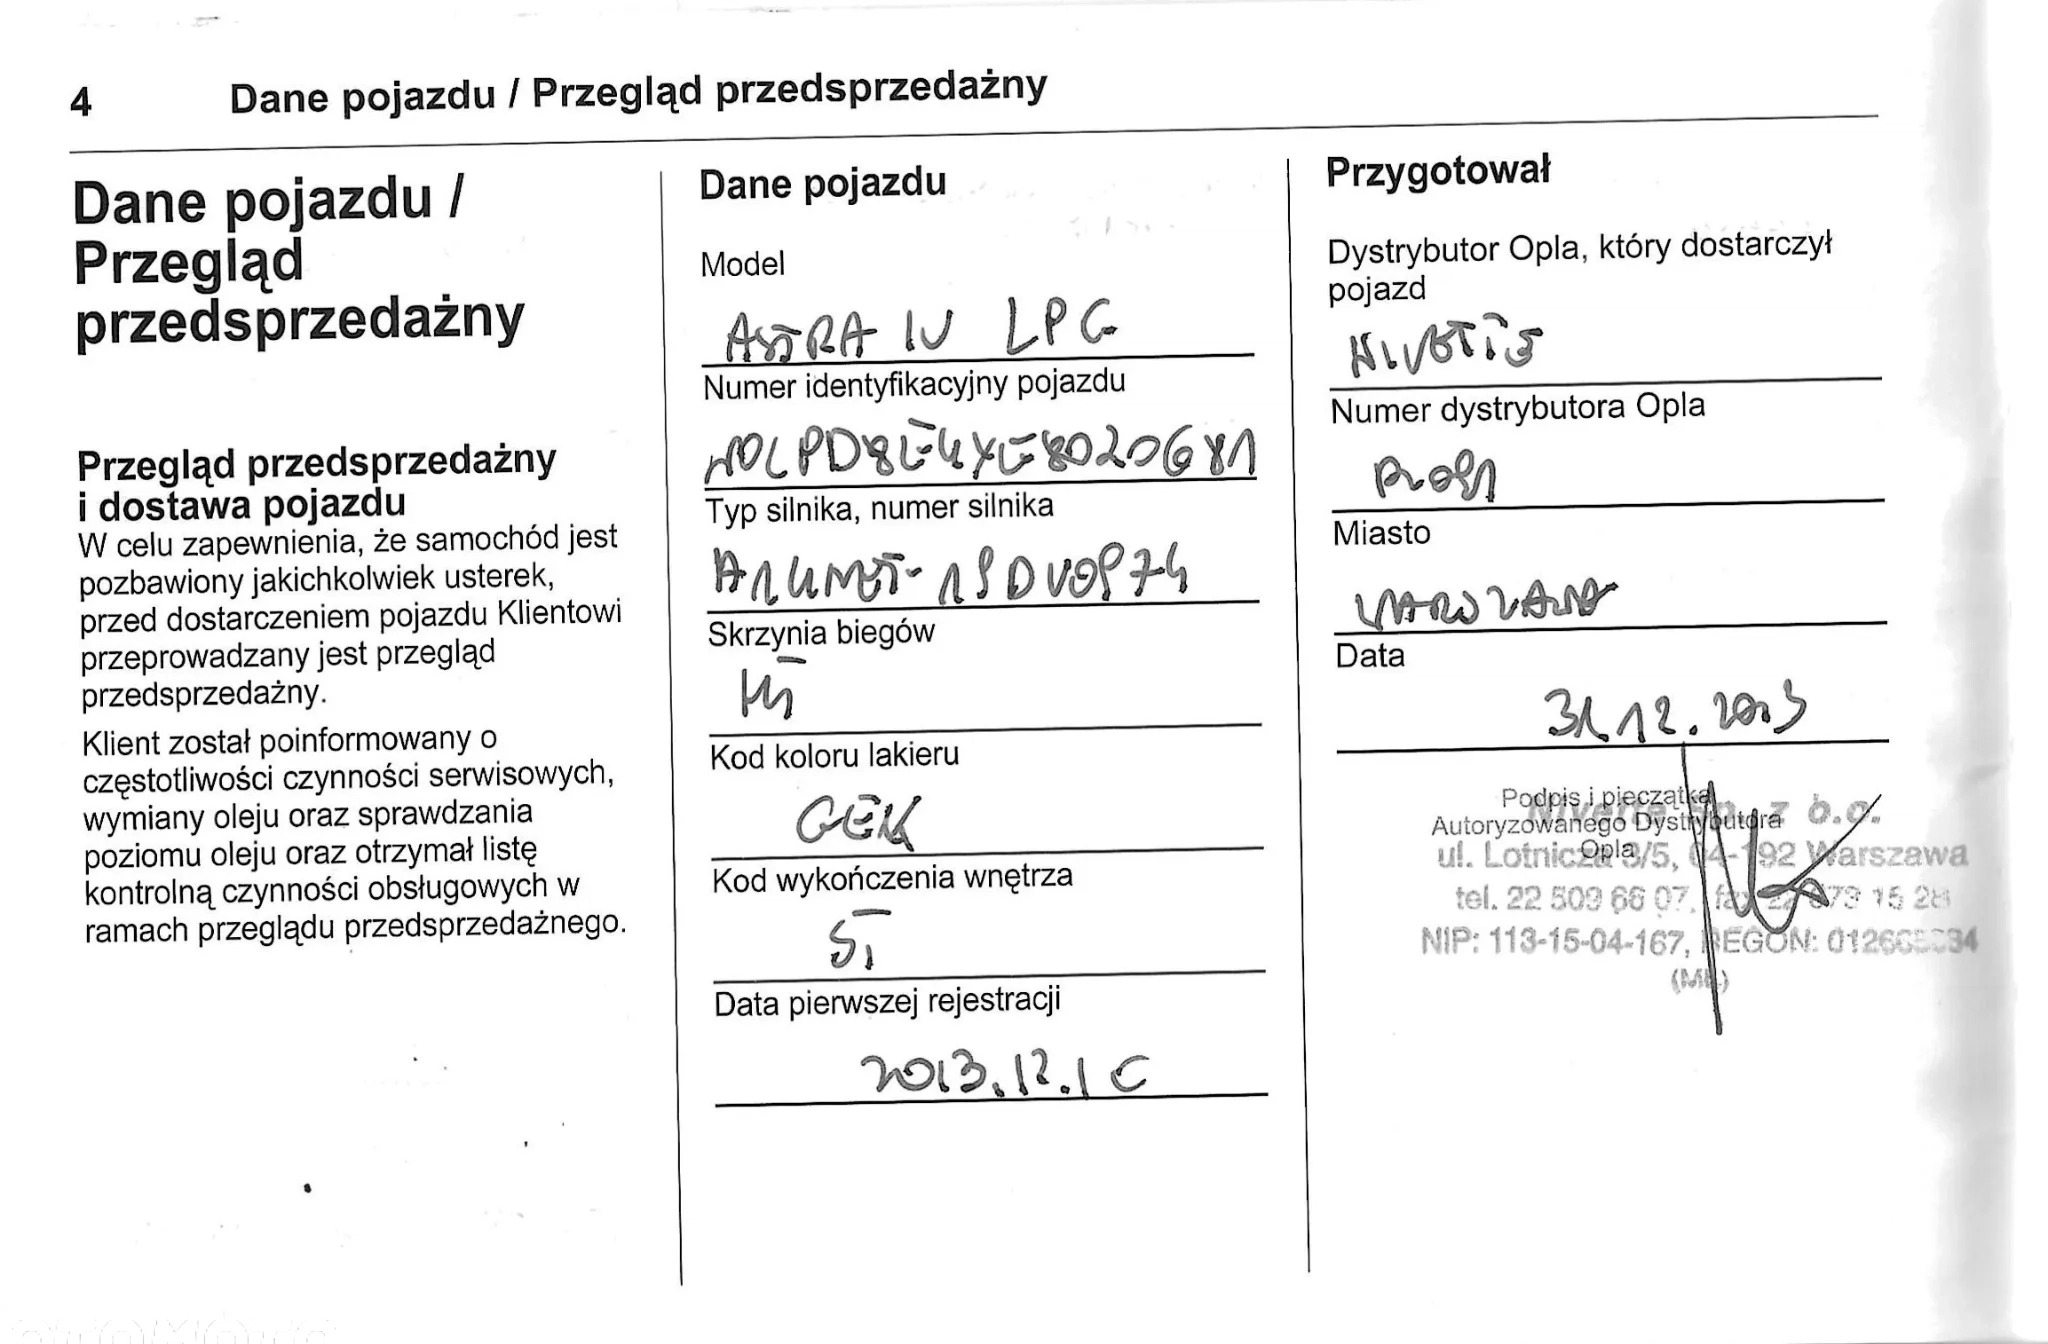 4 Dane pojazdu / Przegląd przedsprzedażny
Dane pojazdu /
Przegląd
przedsprzedażny
Przegląd przedsprzedażny
i dostawa pojazdu
W celu zapewnienia, że samochód jest
pozbawiony jakichkolwiek usterek,
przed dostarczeniem pojazdu Klientowi
przeprowadzany jest przegląd
przedsprzedażny.
Klient został poinformowany o
częstotliwości czynności serwisowych,
wymiany oleju oraz sprawdzania
poziomu oleju oraz otrzymał listę
kontrolną czynności obsługowych w
ramach przeglądu przedsprzedażnego.
Dane pojazdu
Model
ASTRA IV LPG
Numer identyfikacyjny pojazdu
Typ silnika, numer silnika
Skrzynia biegów
Kod koloru lakieru
GEK
Kod wykończenia wnętrza
Data pierwszej rejestracji
2013.12.
Przygotował
Dystrybutor Opla, który dostarczył
pojazd
Numer dystrybutora Opla
Miasto
WARSZAWA
Data
31.12.2013
Podpis i pieczątka
Autoryzowanego Dystrybutora
Opla
Sp. z o.o.
ul. Lotnicza 3/5, 04-192 Warszawa
tel. 22 509 66 07,
NIP: 113-15-04-167, REGON: